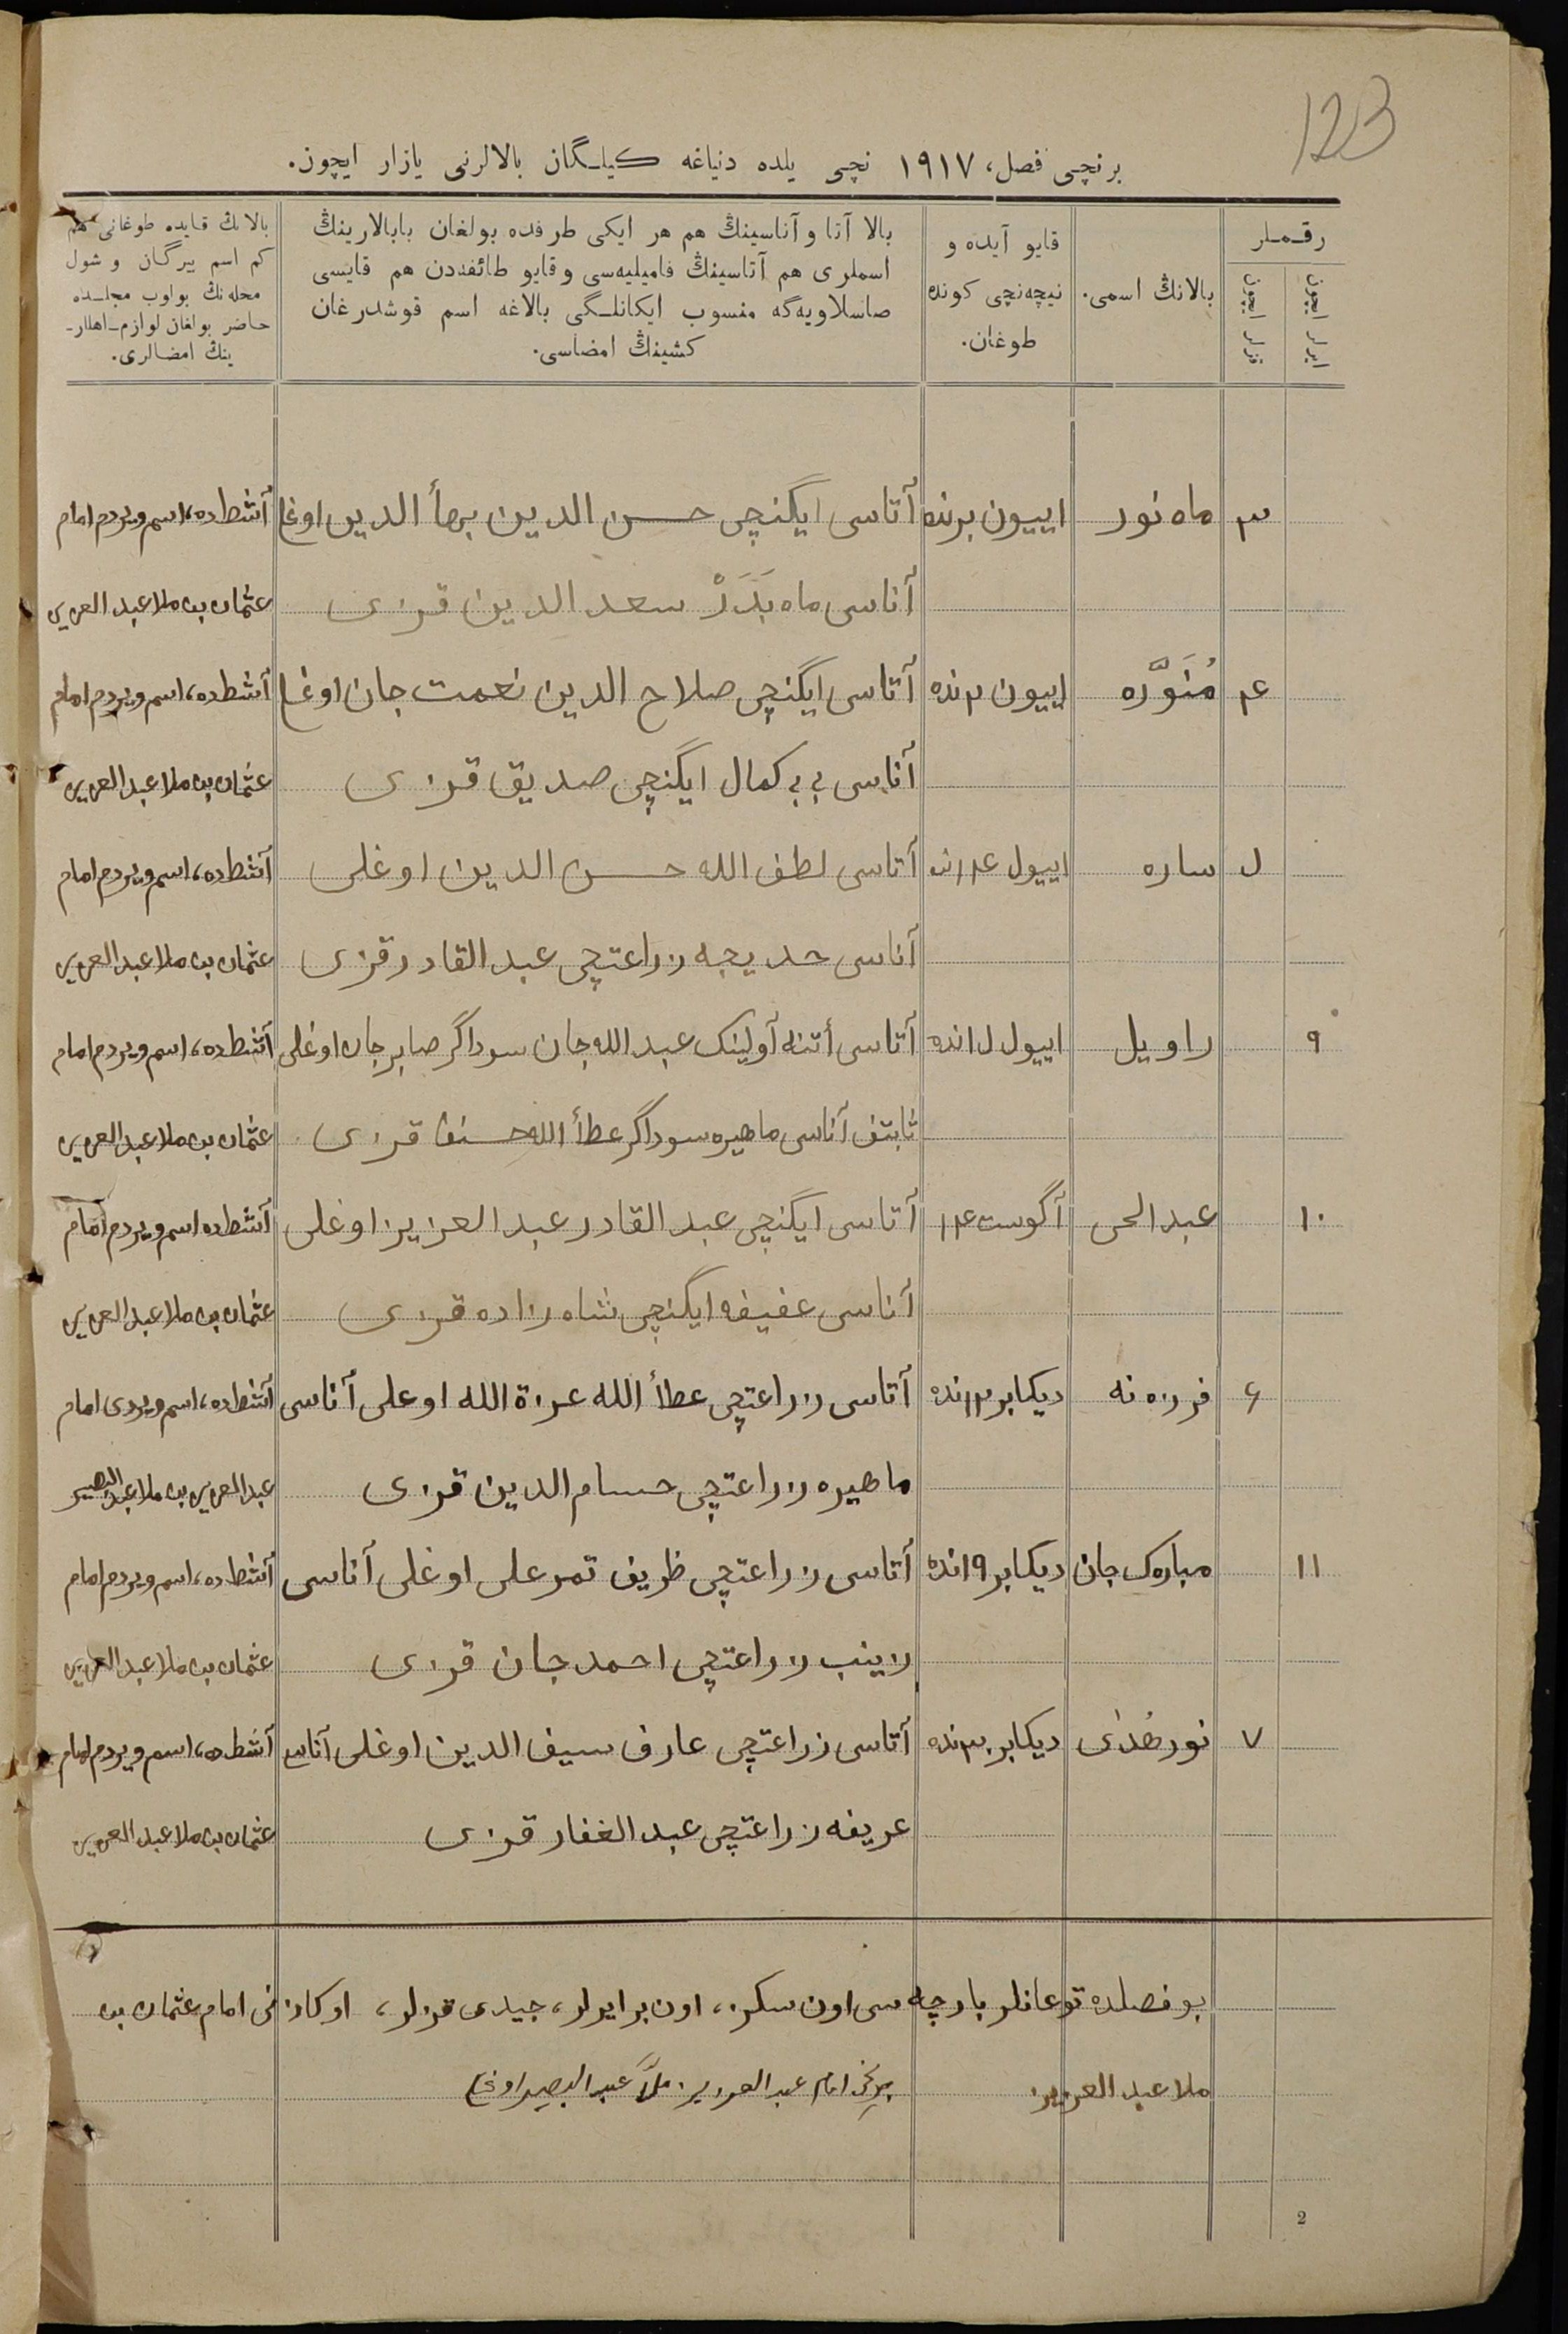 123
برنچی فصل، ۱۹۱۷ نچی یلده دنیاغه کیلـگان بالالرنی یازار ایچون.
رقـمـلر
ایرلر ایچون
قزلر ایچون
بالانڭ اسمی.
قایو آیده و
نیچه‌نچی کونده
طوغان.
بالا آتا و آناسینڭ هم هر ایکی طرفده بولغان بابالارینڭ
اسملری هم آتاسینڭ فامیلیه‌سی و قایو طائفه‌دن هم قایسی
صاسلاویه‌گه منسوب ایکانلـگی بالاغه اسم قوشدرغان
کشینڭ امضاسی.
بالانڭ قایده طوغانی هم
کم اسم بیرگان و شول
محله‌نڭ بولوب مجلـسده
حاضر بولغان لوازم-اهللر-
ینڭ امضالری.
۳ ماه نور اییون برنده آتاسی ایگنچی حسن الدین بهأ الدین اوغلی آشطاده، اسم ویردم امام
آناسی ماه بَدَرْ سعد الدین قزی عثمان بن ملا عبد العزیز
۴ مُنَوَّره اییون ۳نده آتاسی ایگنچی صلاح الدین نعمت جان اوغلی آشطاده، اسم ویردم امام
آناسی بی بی کمال ایگنچی صدیق قزی عثمان بن ملا عبد العزیز
۵ ساره اییول ۱۴نده آتاسی لطف الله حسن الدین اوغلی آشطاده، اسم ویردم امام
آناسی خدیجه زراعتچی عبد القادر قزی عثمان بن ملا عبد العزیز
۹ راویل اییول ۱۵نده آتاسی عبد الله جان سوداگر صابر جان اوغلی آشطاده، اسم ویردم امام
ثابتف آناسی ماهیره سوداگر عطأ الله قزی عثمان بن ملا عبد العزیز
۱۰ عبد الحی آگوست ۱۴ آتاسی ایگنچی عبد القادر عبد العزیز اوغلی آشطاده اسم ویردم امام
آناسی عفیفه ایگنچی شاه زاده قزی عثمان بن ملا عبد العزیز
۶ فرزانه دیکابر ۱۳نده آتاسی زراعتچی عطأ الله عزة الله اوغلی آناسی آشطاده، اسم ویردی امام
ماهیره زراعتچی حسام الدین قزی عبد العزیز بن ملا عبد البصیر
۱۱ مبارک جان دیکابر ۱۹نده آتاسی زراعتچی ظریف تمر علی اوغلی آناسی آشطاده، اسم ویردم امام
زینب زراعتچی احمد جان قزی عثمان بن ملا عبد العزیز
۷ نور هُدٰی دیکابر ۳۰نده آتاسی زراعتچی عارف سیف الدین اوغلی آناسی آشطاده، اسم ویردم امام
عریفه زراعتچی عبد الغفار قزی عثمان بن ملا عبد العزیز
بو فصلده توغانلر بارچه سی اون سکز، اون بر ایرلر، جیدی قزلر، اوکازنی امام عثمان بن
ملا عبد العزیز
برنچی امام عبد العزیز ملّا عبد البصیر اوغلی
2